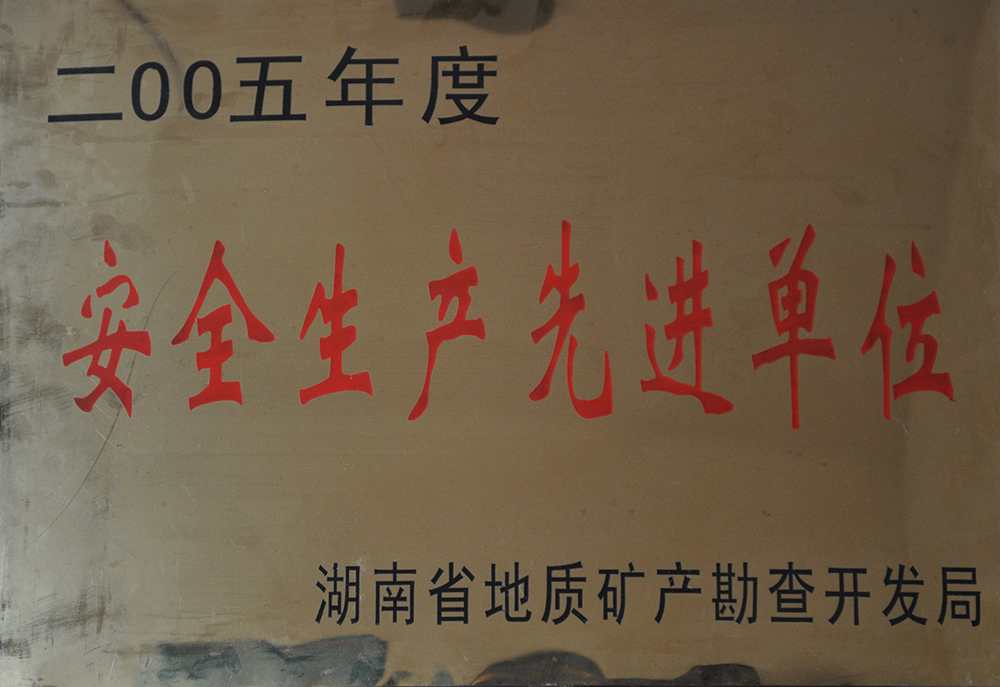 二00五年度
安全生产先进单位
湖南省地质矿产勘查开发局